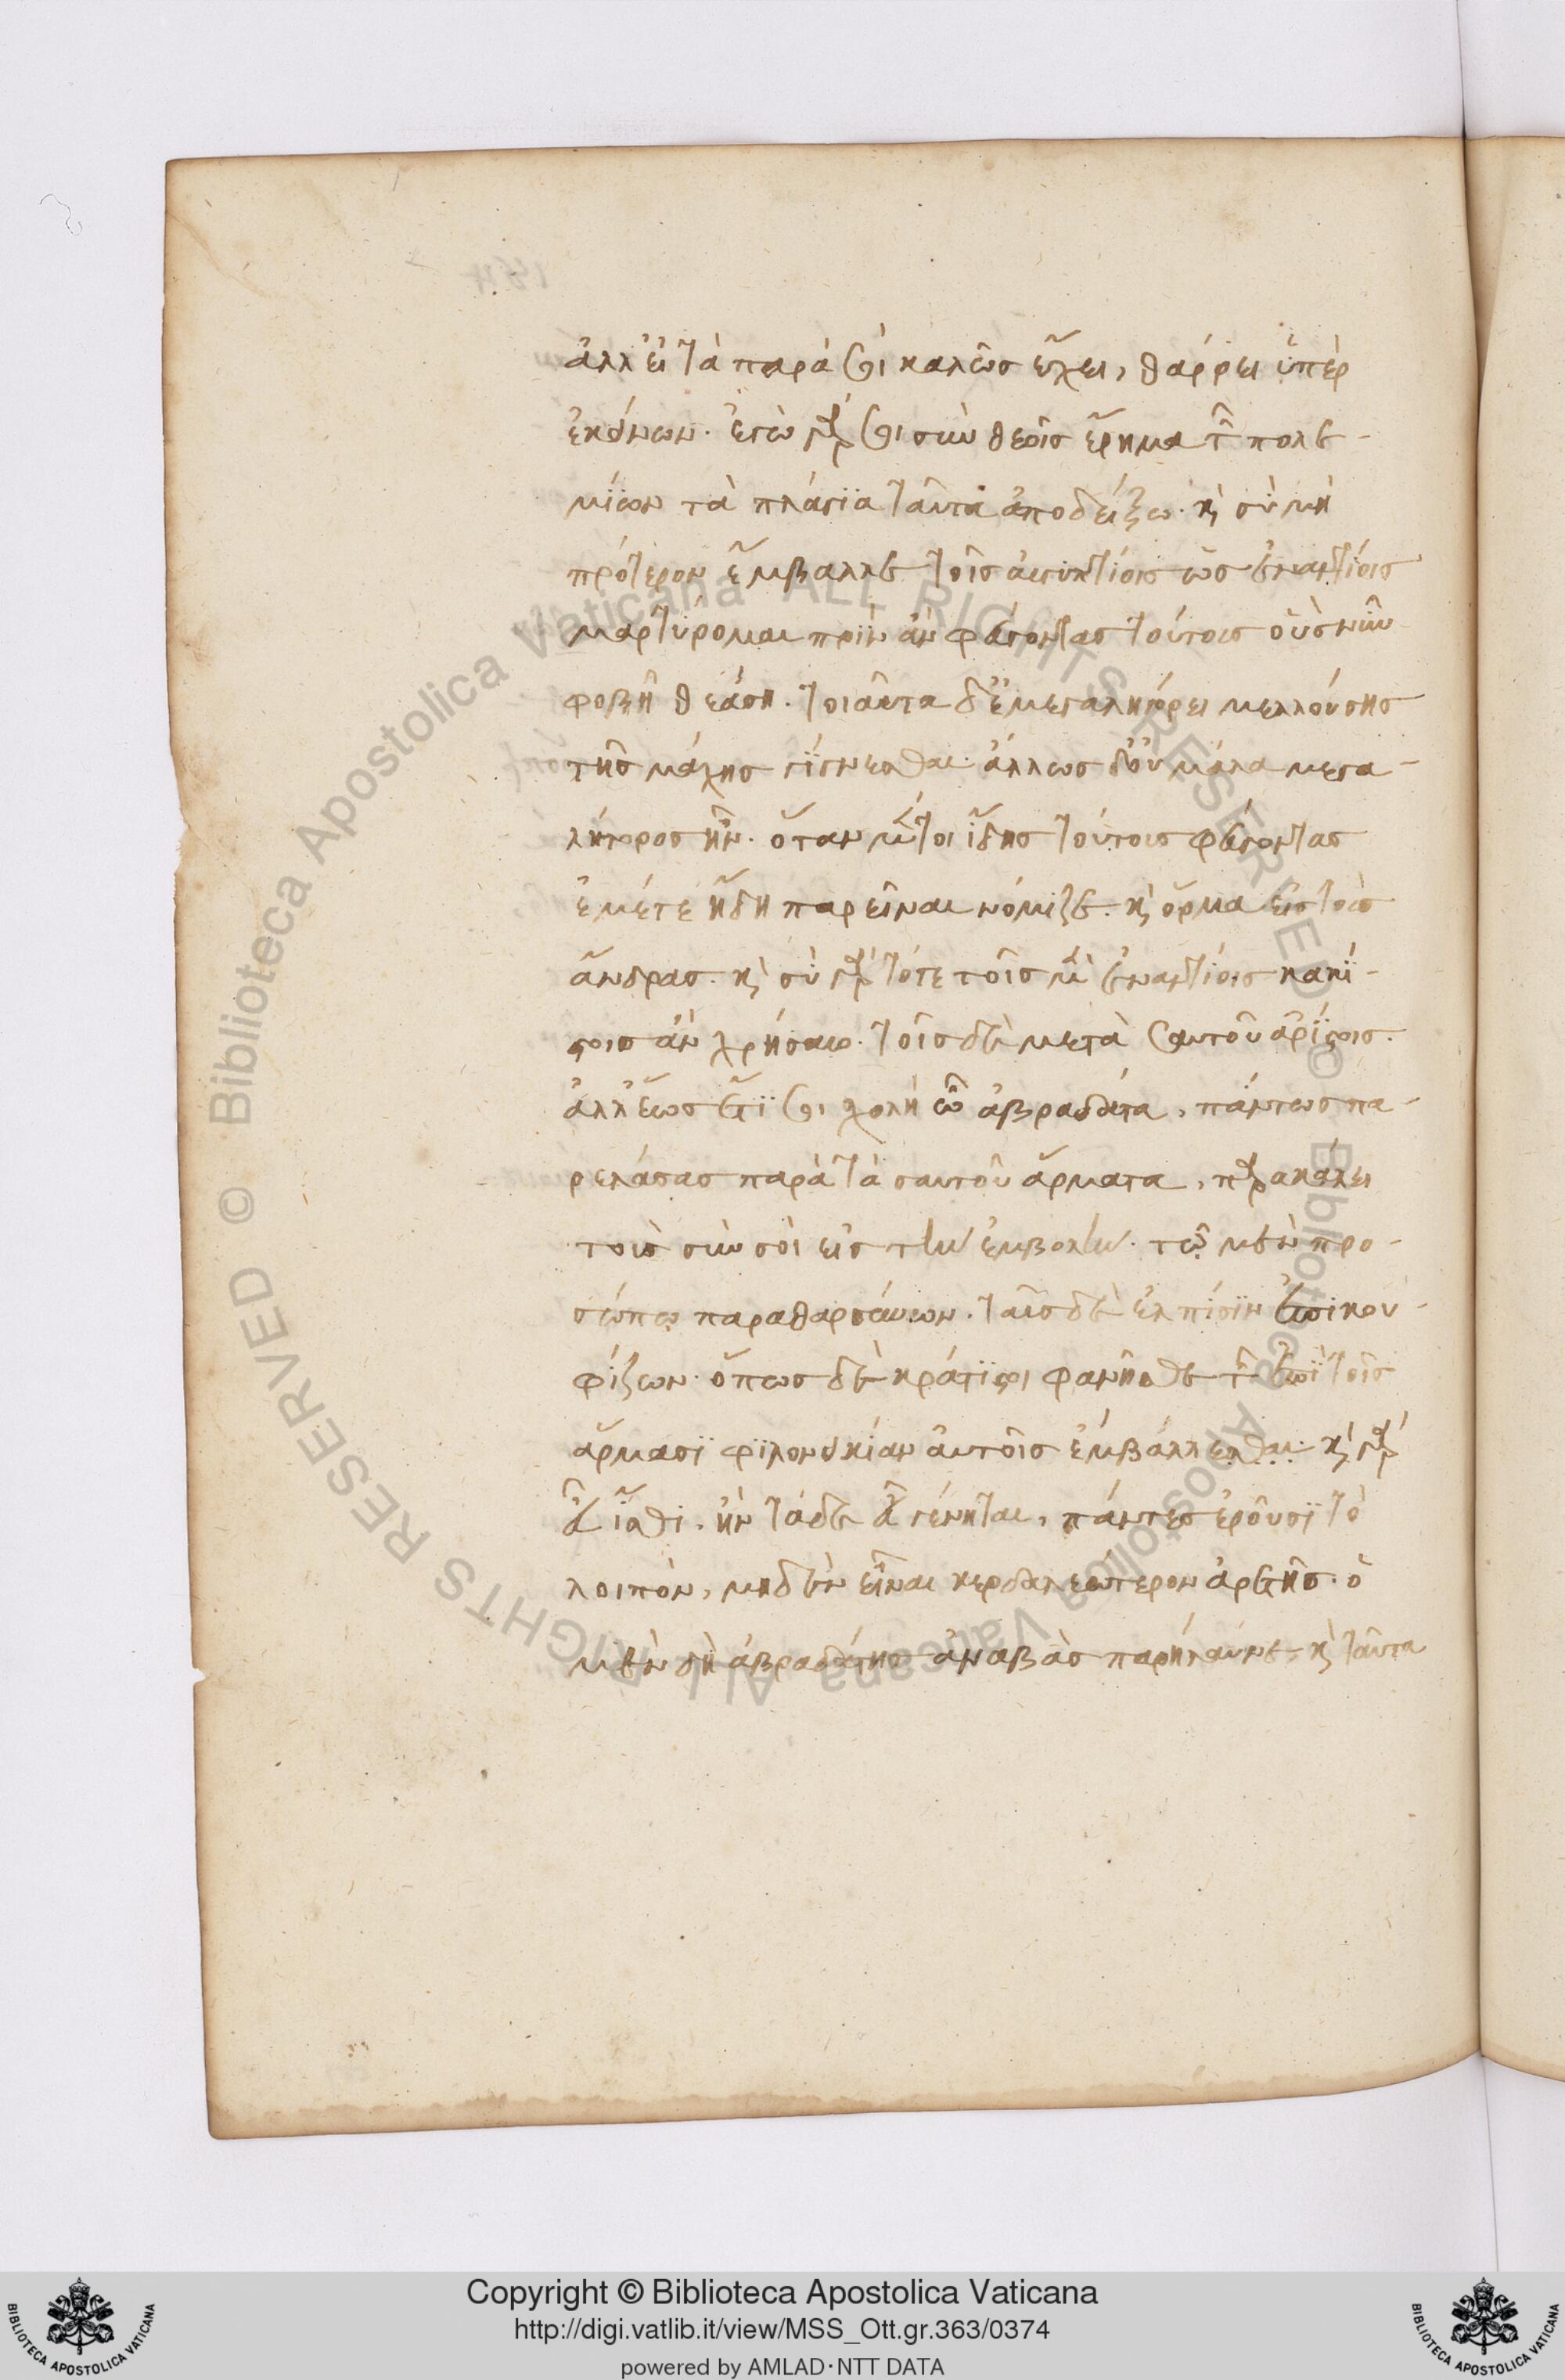 ἀλλ' εἰ τὰ παρὰ σοὶ καλῶσ ἔχει, θάρρει ὑπὲρ
ἐκείνων. ἐγὼ γάρ σοι σὺν θεοῖσ ἔρημα τῶν πολε-
μίων τὰ πλάγϊα ταῦτα ἀποδείξω. κὶ σὺ μὴ
πρότερον ἔμβαλλε τοῖσ ἀντίοισ ὡσ ἐναντίοισ
μαρτύρομαι πρὶν ἂν φεύγοντασ τούτουσ οὓσ νῦν
φοβῇ θεάσῃ. τοιαῦτα δ' ἐμεγαληγόρει μελλούσησ
τῆσ μάχησ γίγνεσθαι· ἄλλωσ δ' οὐ μάλα μεγα-
λήγοροσ ἦν. ὅταν μέντοι ἴδῃσ τούτουσ φεύγοντασ
ἐμέ τε ἤδη παρεῖναι νόμιζε. κὶ ὅρμα εἰσ τοὺσ
ἄνδρασ. κὶ σὺ γὰρ τότε τοῖσ μὲν ἐναντίοισ κακί-
στοισ ἂν χρήσαιο. τοῖσ δὲ μετὰ σαυτοῦ ἀρίστοισ.
ἀλλ' ἕωσ ἔτι σοι σχολὴ ὦ ἀβραδάτα, πάντωσ πα-
ρελάσασ παρὰ τὰ σαυτοῦ ἅρματα, παρακάλει
τοὺσ σὺν σοὶ εἰσ τὴν ἐμβολήν. τῷ μὲν προ-
σώπῳ παραθαρσύνων. ταῖσ δὲ ἐλπίσϊν ἐπικου-
φίζων. ὅπωσ δὲ κράτϊστοι φανῆσθε τῶν ἐπὶ τοῖσ
ἅρμασϊ φϊλονεικίαν αὐτοῖσ ἐμβάλλεσθαι. κὶ γὰρ
εὖ ἴσθι. ἢν τάδε εὖ γένηται, πάντεσ ἐροῦσϊ τὸ
λοιπὸν, μηδὲν εἶναι κερδαλεώτερον ἀρετῆσ. ὁ
μὲν δὴ ἀβραδάτησ ἀναβὰσ παρήλαυνε, κὶ ταῦτα
Copyright © Biblioteca Apostolica Vaticana
http://digi.vatlib.it/view/MSS_Ott.gr.363/0374
powered by AMLAD·NTT DATA
BIBLIOTECA APOSTOLICA VATICANA
BIBLIOTECA APOSTOLICA VATICANA
© Biblioteca Apostolica Vaticana ALL RIGHTS RESERVED
© Biblioteca Apostolica Vaticana ALL RIGHTS RESERVED